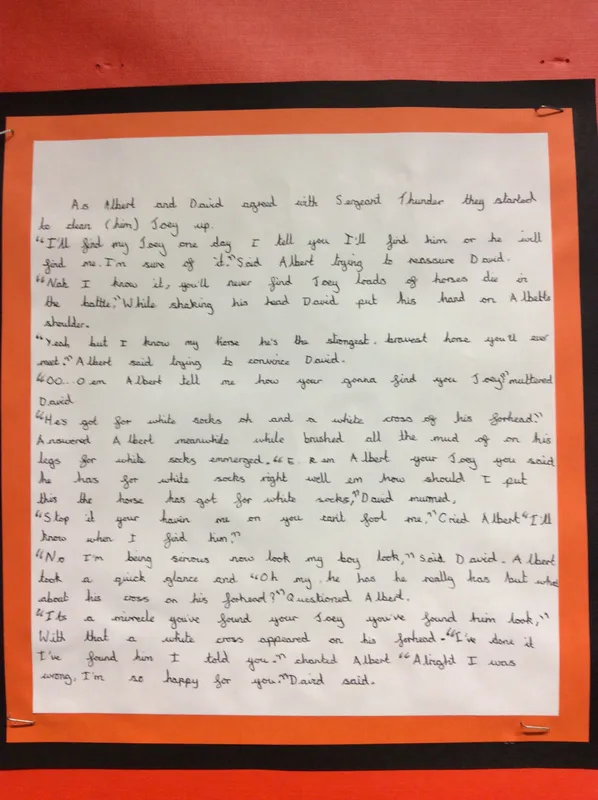 As Albert and David agreed with Sergeant Thunder they started
to clean (him) Joey up.
"I'll find my Joey one day I tell you I'll find him or he will
find me. I'm sure of it." Said Albert trying to reassure David.
"Nat I know it, you'll never find Joey loads of horses die in
the battle," While shaking his head David put his hand on Albebts
shoulder.
"Yeah but I know my horse he's the strongest, bravest horse you'll ever
meet." Albert said trying to convince David.
"OO...O em Albert tell me how your gonna find you Joey?" muttered
David
"He's got for white socks oh and a white cross of his forhead."
Answered Albert meanwhile while brushed all the mud of on his
legs for white socks emmerged. "E.. R em Albert your Joey you said
he has for white socks right well em how should I put
this the horse has got for white socks," David mumed,
"Stop it your havin me on you can't fool me." Cried Albert "I'll
know when I find him."
"No I'm being serious now look my boy look," Said David. Albert
took a quick glance and "Oh my he has he really has but what
about his cross on his forhead?" Questioned Albert.
"Its a miracle you've found your Joey you've found him look,"
With that a white cross appeared on his forhead. "I've done it
I've found him I told you." chanted Albert "Alright I was
wrong, I'm so happy for you." David said.